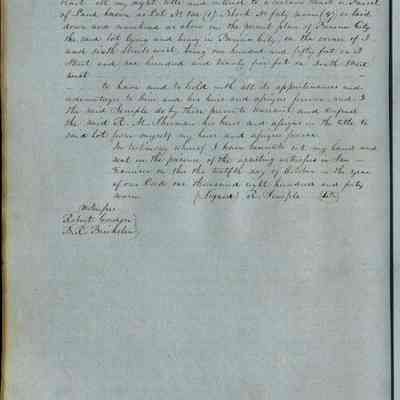 that all my right, title and interest to a certain Tract or Parcel
of Land, known as Lot No One (1) Block No fifty seven (57) as laid
down and numbered as above on the recent plan of Benicia City
the said lot lying and being in Benicia City, on the corner of I
and Sixth Streets west, being one hundred and fifty feet on I
Street and one hundred and twenty five feet on Sixth Street
west
To have and to hold with all its appurtenances and
advantages to him and his heirs and assigns forever. And I
the said Semple do by these presents warrant and defend
the said R. M. Sherman his heirs and assigns in the title to
said lot from myself my heirs and assigns forever
In testimony whereof I have hereunto set my hand and
seal in the presence of the attesting witnesses in San
Francisco on this the twelfth day of October in the year
of our Lord one thousand eight hundred and forty
seven (Signed) R. Semple
Witness
Robert